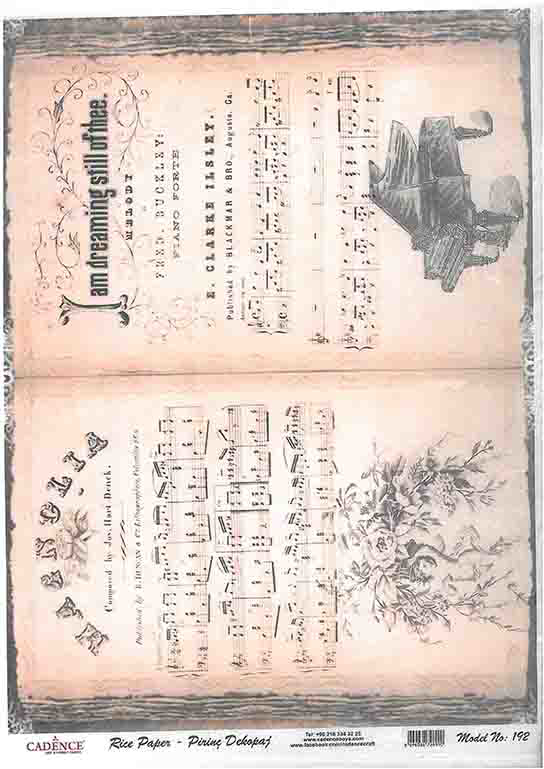 I am dreaming still of thee.
MELODY
FRED. BUCKLEY:
PIANO FORTE
E. CLARKE ILSLEY.
Published by BLACKMAR & BRO., Augusta, Ga.
MAGNOLIA
Composed by Jos. Hart Denck.
Published by
CADENCE
Rice Paper - Pirinç Dekopaj
Tel: +90 216 334 32 25
www.cadenceboya.com
www.facebook.com/cadencecraft
Model No: 192